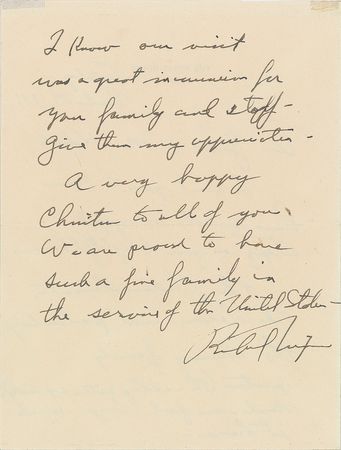 I know our visit
was a great inconvenience for
your family and staff -
Give them my appreciation -
A very happy
Christmas to all of you.
We are proud to have
such a fine family in
the service of the United States -
Richard Nixon